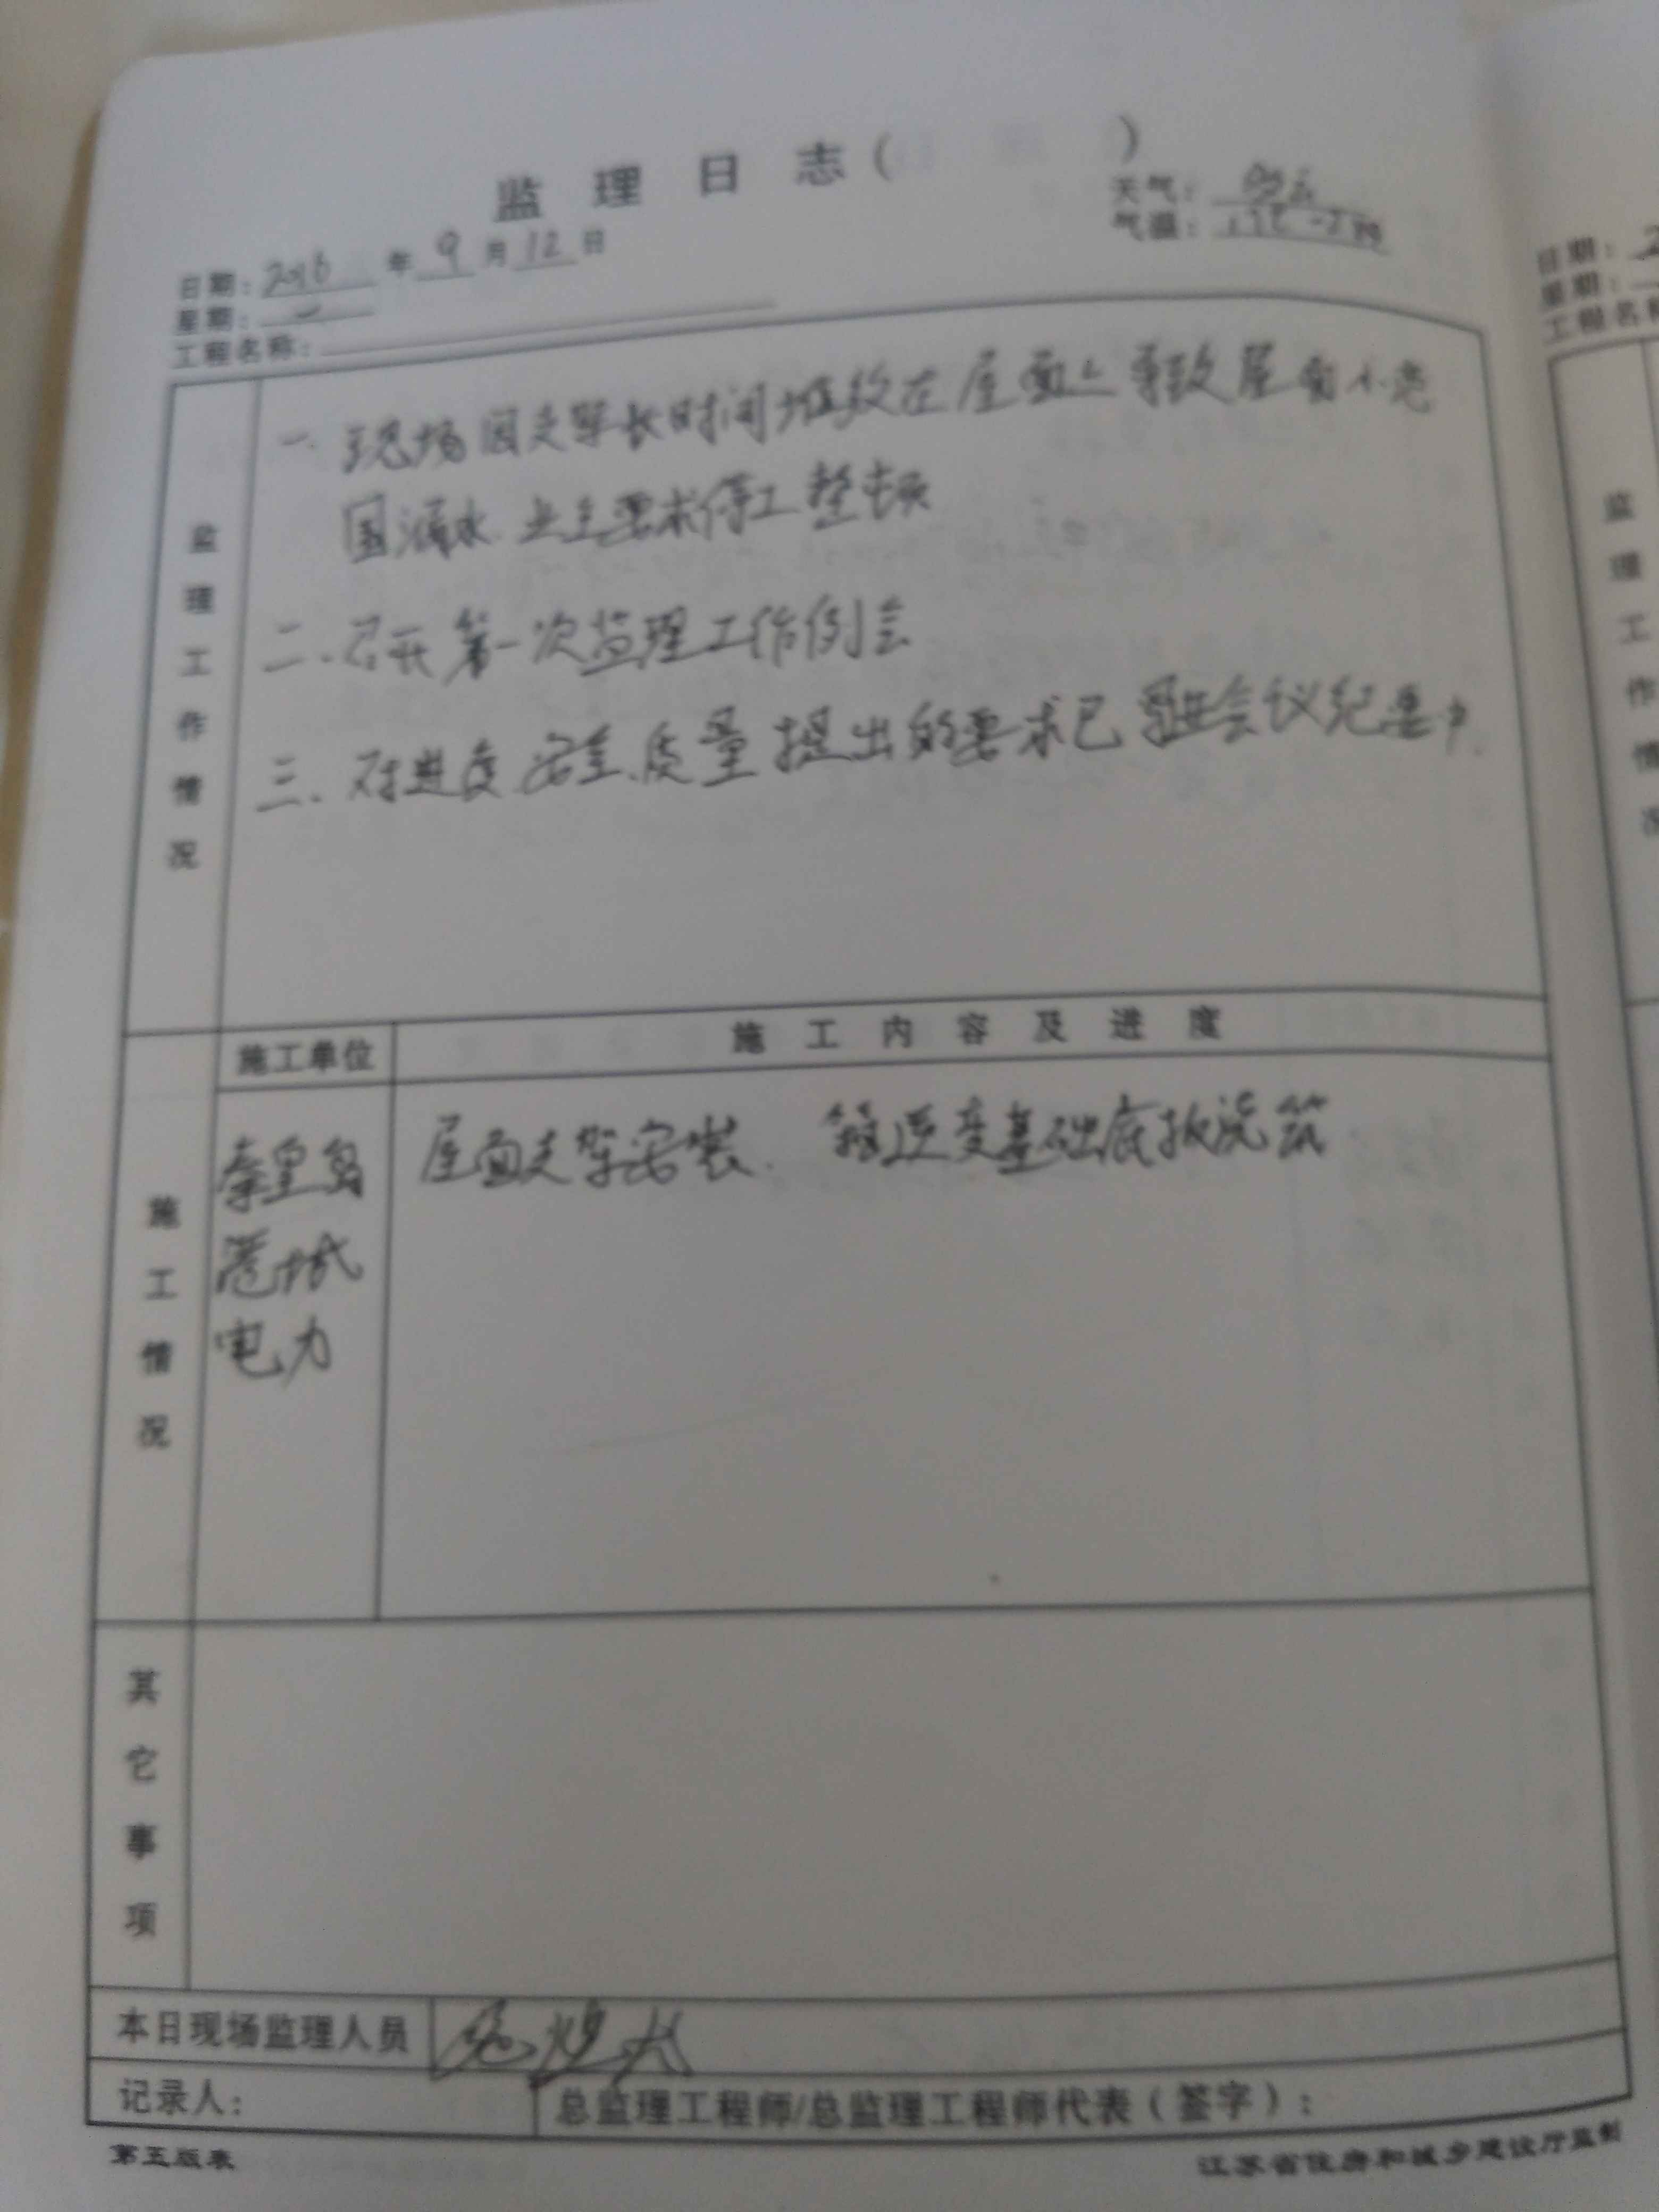 监理日志（ ）
天气：多云
气温：
日期：2016年9月12日
星期：一
工程名称：
监理工作情况
一.现场因支架长时间堆放在屋面上导致屋面小范
围漏水.业主要求停工整顿
二.召开第一次监理工作例会
三.对进度.安全.质量提出的要求已 会议纪要中.
施工情况
施工单位
施工内容及进度
秦皇岛
港城
电力
屋面支架安装. 箱逆变基础底板浇筑
其它事项
本日现场监理人员
记录人：
总监理工程师/总监理工程师代表（签字）：
第五版表
江苏省住房和城乡建设厅监制
日期：2
星期：
工程名称
监理工作情况